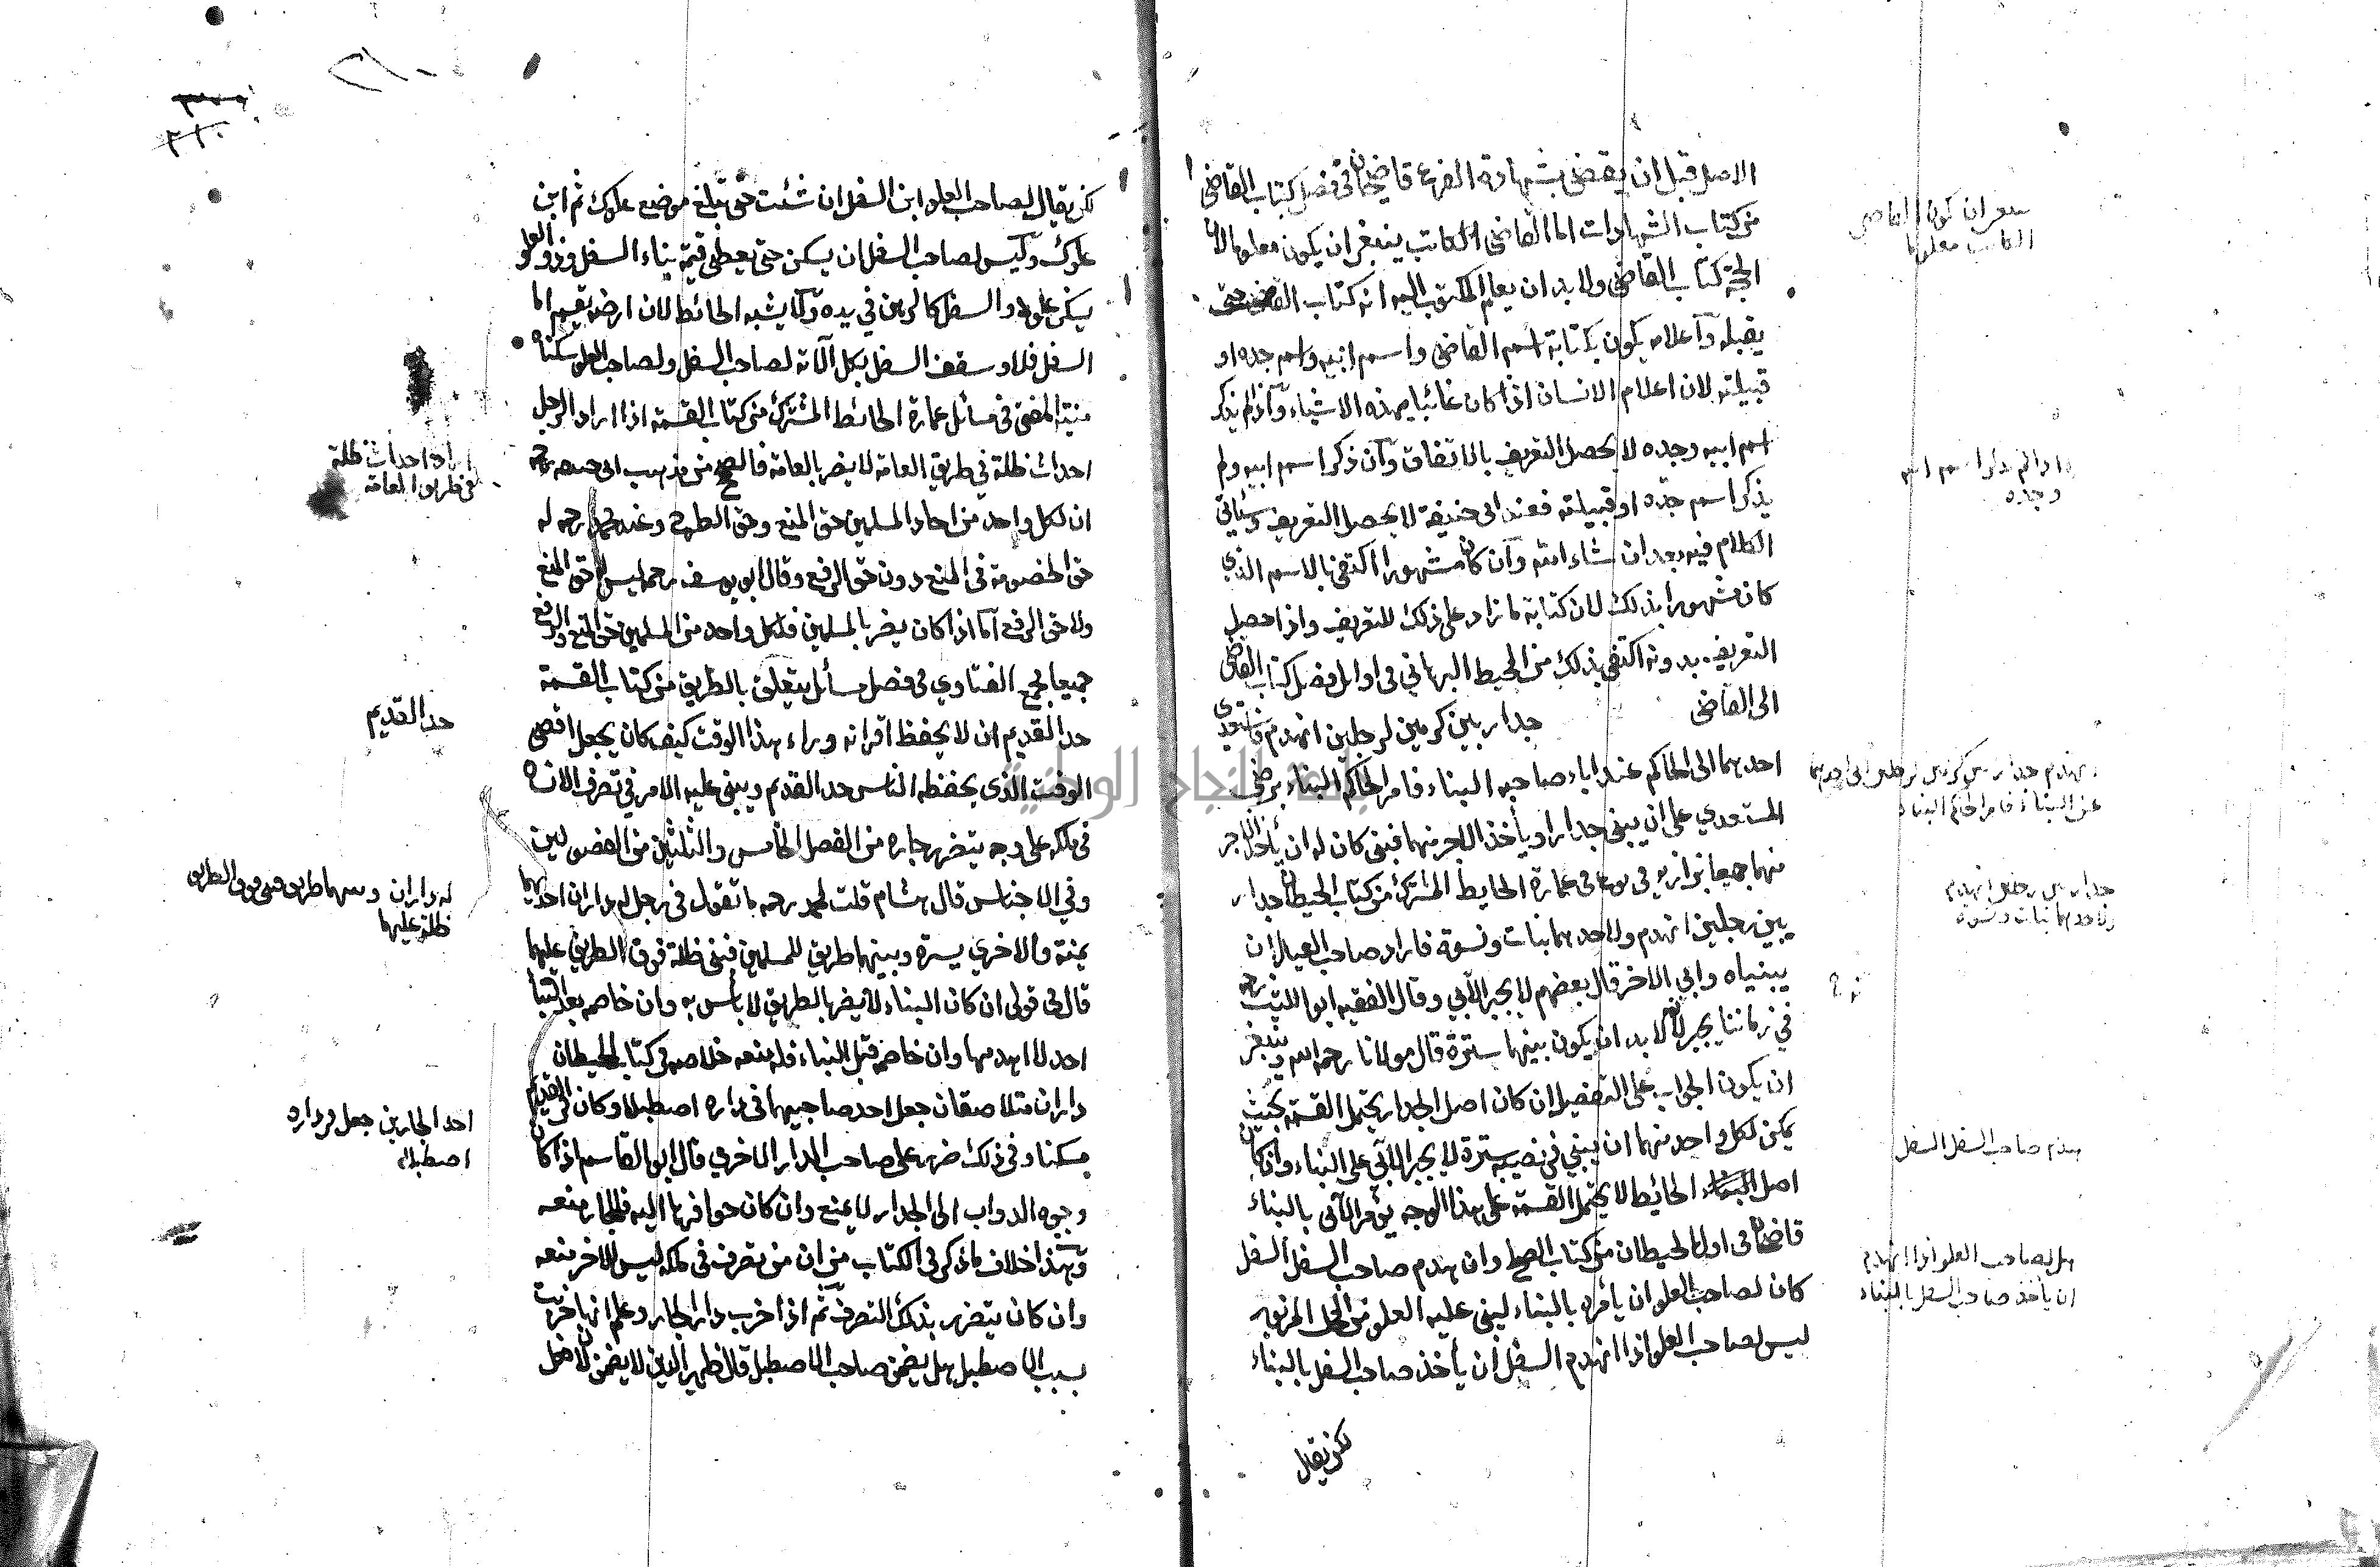 الاصل قبل ان يقضى بشهادة الفرع قاضيخان فى فصل كتاب القاضى
من كتاب الشهادات اما القاضى الكاتب ينبغى ان يكون معلوما لان
الحجة كتاب القاضى ولا بد ان يعلم المكتوب اليه انه كتاب القاضى حتى
يقبله واعلامه يكون بكتابة اسم القاضى واسم ابيه واسم جده او
قبيلته لان اعلام الانسان اذا كان غائبا بهذه الاشياء واذا لم يذكر
اسم ابيه وجده لا يحصل التعريف بالاتفاق وان ذكر اسم ابيه ولم
يذكر اسم جده او قبيلته فعند ابى حنيفة لا يحصل التعريف وسيأتى
الكلام فيه بعد ان شاء الله وان كان مشهورا اكتفى بالاسم الذي
كان مشهورا بذلك لان كتابة ما زاد على ذلك للتعريف واذا حصل
التعريف بدونه اكتفى بذلك من المحيط البرهاني فى اوائل فصل كتاب القاضى
الى القاضى جدار بين كرمين لرجلين انهدم فاستعدى
احدهما الى الحاكم عند اباء صاحبه البناء فامر الحاكم البناء برضى
المستعدي على ان يبنى جدارا ويأخذ الاجر منهما فبنى كان له ان يأخذ الاجر
منهما جميعا بزازيه فى نوع فى عمارة الحايط المشترك من كتاب الحيطان جدار
بين رجلين انهدم ولاحدهما بنات ونسوة فاراد صاحب العيال ان
يبنياه وابى الاخر قال بعضهم لا يجبر الآبي وقال الفقيه ابو الليث رحمه
في زماننا يجبر لانه لا بد ان يكون بينهما سترة قال مولانا رحمه الله وينبغى
ان يكون الجواب على التفصيل ان كان اصل الجدار يحتمل القسمة بحيث
يمكن لكل واحد منهما ان يبني في نصيبه سترة لا يجبر الآبي على البناء وان كان
اصل الحائط لا يحتمل القسمة على هذا الوجه يؤمر الآبى بالبناء
قاضيخان فى اول الحيطان من كتاب الصلح وان هدم صاحب السفل السفل
كان لصاحب العلو ان يأمره بالبناء ليبنى عليه العلو من المحل المزبور
ليس لصاحب العلو اذا انهدم السفل ان يأخذ صاحب السفل بالبناء
لكن يقال
ينبغى ان يكون القاضى
الكاتب معلوما
اذا لم يذكر اسم ابيه
وجده
انهدم جدار بين كرمين لرجلين ابى احدهما
عن البناء فامر الحاكم البناء
جدار بين رجلين انهدم
ولاحدهما بنات ونسوة
هدم صاحب السفل السفل
هل لصاحب العلو اذا انهدم
ان يأخذ صاحب السفل بالبناء
لكن يقال لصاحب العلو ابن السفل ان شئت حتى تبلغ موضع علوك ثم ابن
علوك وليس لصاحب السفل ان يسكن حتى يعطى قيمة بناء السفل وذو العلو
يسكن علوه والسفل كالرهن في يده ولا يشبه الحائط لان ارضه يقسم اما
السفل فلا وسقف السفل بكل آلاته لصاحب السفل ولصاحب العلو سكناه
منية المفتى فى مسائل عمارة الحائط المشترك من كتاب القسمة اذا اراد الرجل
احداث ظلة في طريق العامة لا يضر بالعامة فالصحيح من مذهب ابى حنيفة رحمه
ان لكل واحد من احاد المسلمين حق المنع وحق الطرح وعند محمد رحمه له
حق الخصومة فى المنع دون حق الرفع وقال ابو يوسف رحمه ليس له حق المنع
ولا حق الرفع اما اذا كان يضر بالمسلمين فلكل واحد من المسلمين حق المنع والرفع
جميعا مجمع الفتاوي فى فصل مسائل يتعلق بالطريق من كتاب القسمة
حد القديم ان لا يحفظ اقرانه وراء هذا الوقت كيف كان يجعل اقصى
الوقت الذى يحفظه الناس حد القديم ويبنى عليه الامر في تصرف الانسان
فى ملكه على وجه يتضرر جاره من الفصل الخامس والثلثين من الفصولين
وفي الاجناس قال هشام قلت لمحمد رحمه ما تقول فى رجل له داران احديهما
يمنة والاخرى يسرة وبينهما طريق للمسلمين فبنى ظلة فوق الطريق عليهما
قال فى قولى ان كان البناء لا يضر بالطريق لا بأس به وان خاصمه بعد البناء
احد لا اهدمها وان خاصم قبل البناء فله منعه خلاصه فى كتاب الحيطان
داران متلاصقان جعل احد صاحبيهما فى داره اصطبلا وكان فى القديم
مسكنا وفى ذلك ضرر على صاحب الدار الاخرى قال ابو القاسم اذا كان
وجوه الدواب الى الجدار لا يمنع وان كان حوافرها اليه فللجار منعه
وهذا خلاف ما ذكر فى الكتاب من ان من تصرف فى ملكه ليس للاخر منعه
وان كان يتضرر بذلك التصرف ثم اذا خرب دار الجار وعلم انها خربت
بسبب الاصطبل هل يضمن صاحب الاصطبل قال ظهير الدين لا يضمن لان فعل
اراد احداث ظلة
فى طريق العامة
حد القديم
له داران وبينهما طريق فبنى فوق الطريق
ظلة عليهما
احد الجارين جعل فى داره
اصطبلا
جامعة النجاح الوطنية